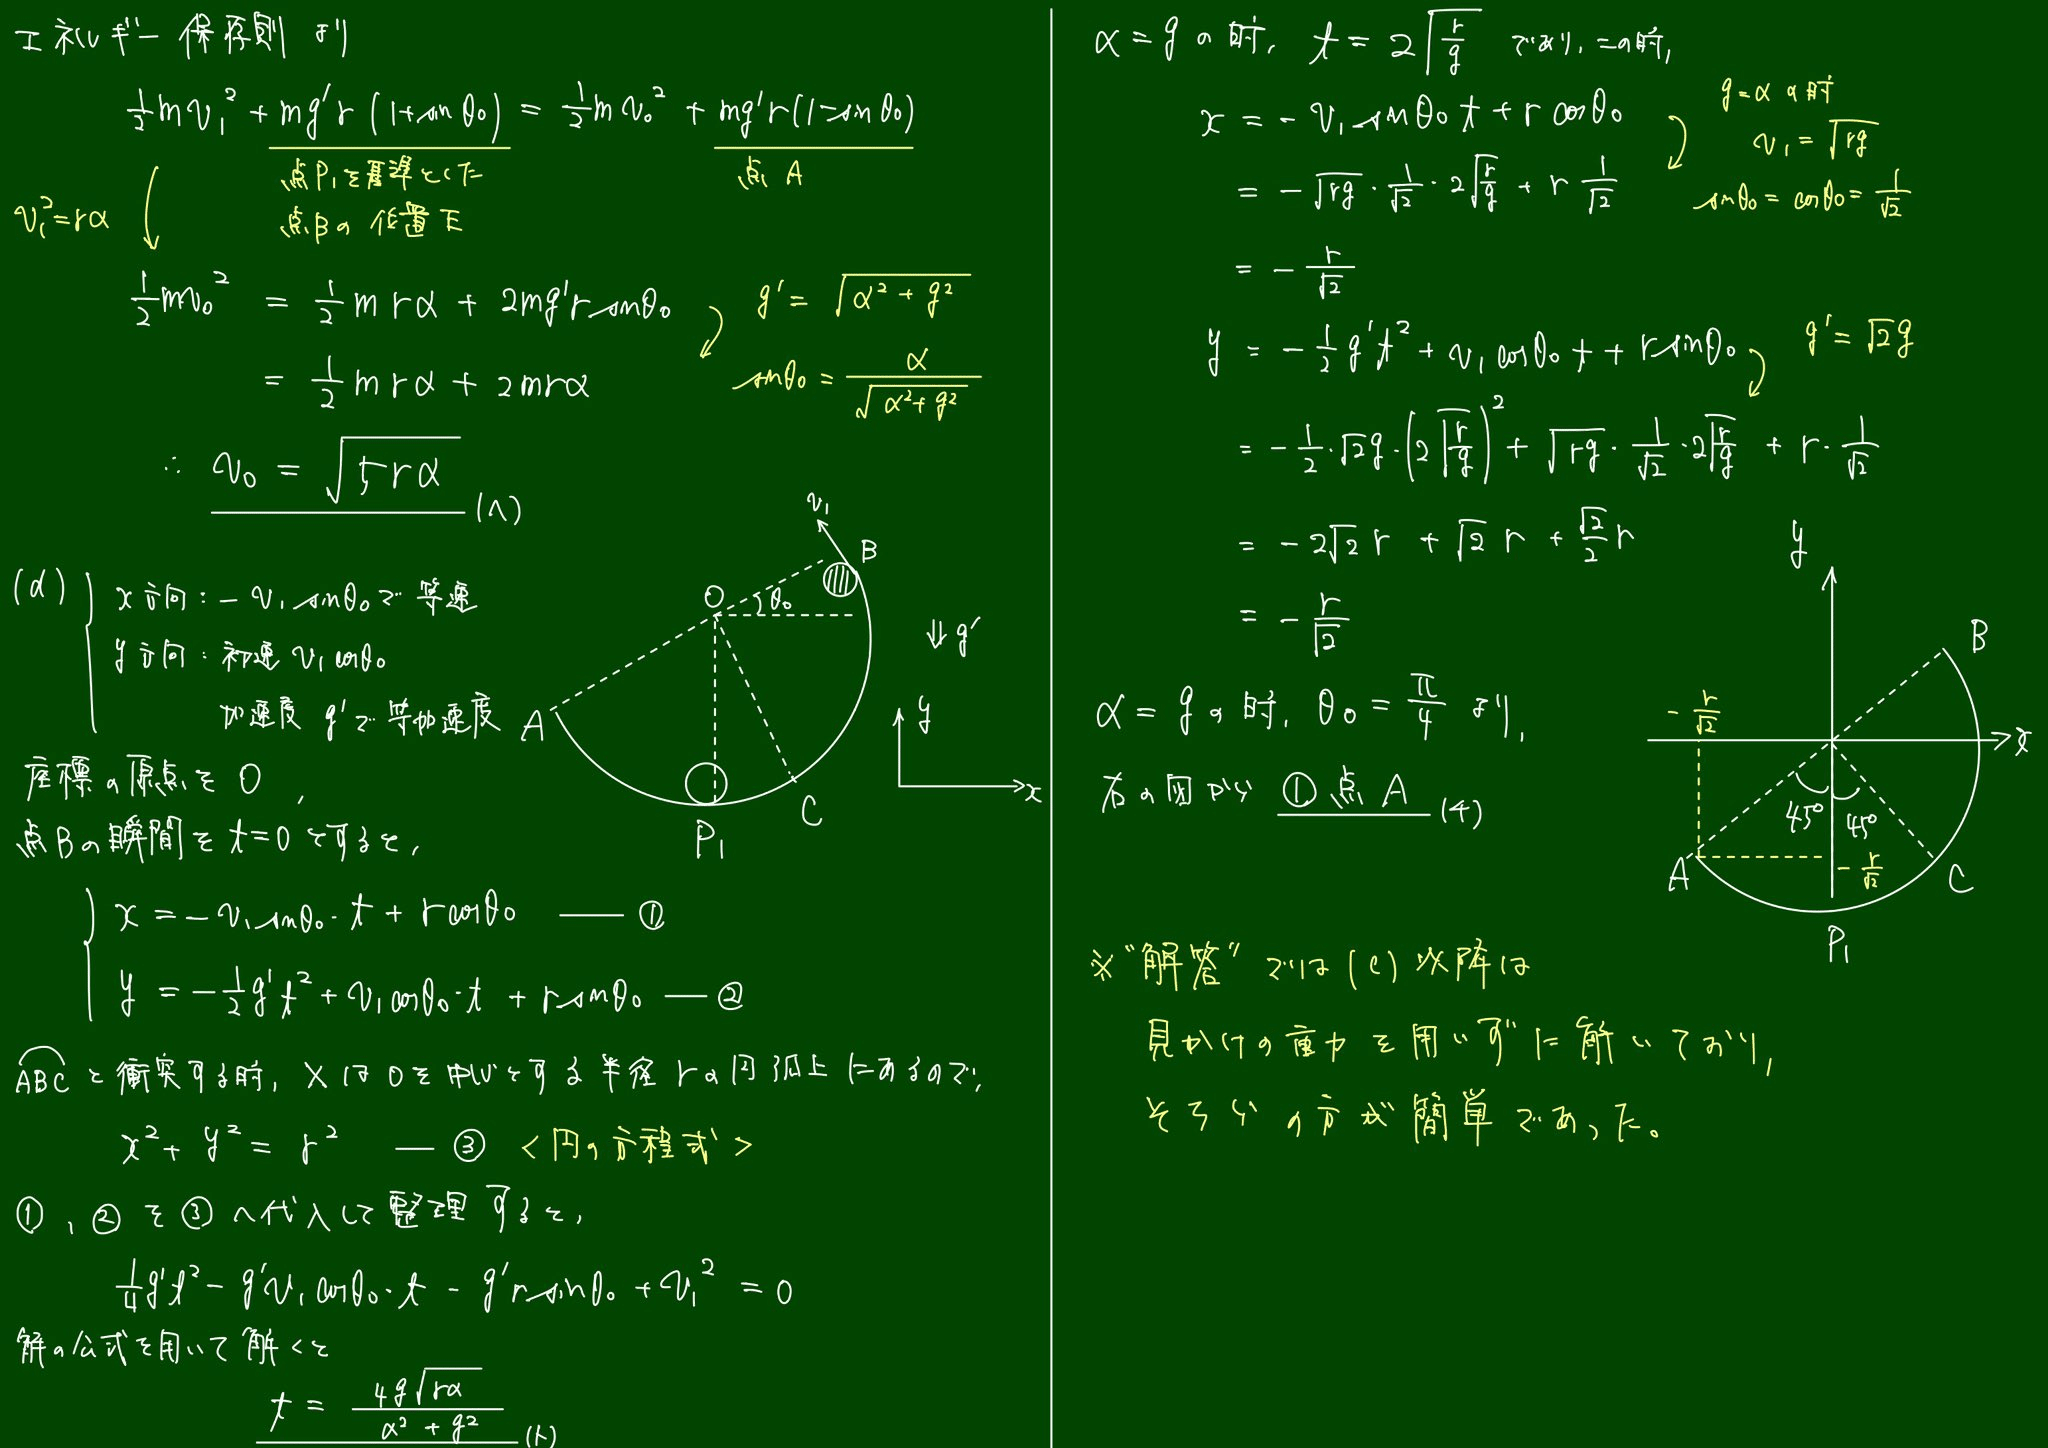 エネルギー保存則より
½mv₁² + mg'r(1+sinθ₀) = ½mv₀² + mg'r(1-sinθ₀)
点P₁を基準とした
点Bの位置E
点A
v₁²=rα
½mv₀² = ½mrα + 2mg'r sinθ₀
g' = √(α²+g²)
= ½mrα + 2mrα
sinθ₀ = α/√(α²+g²)
∴ v₀ = √(5rα) (ハ)
(d)
x方向:-v₁sinθ₀で等速
y方向:初速v₁cosθ₀
加速度g'で等加速度
v₁
B
O
θ₀
g'
A
C
P₁
y
x
座標の原点をO,
点Bの瞬間をt=0とすると,
x = -v₁sinθ₀・t + rcosθ₀ ― ①
y = -½g't² + v₁cosθ₀・t + rsinθ₀ ― ②
ABCと衝突する時, XはOを中心とする半径rの円弧上にあるので,
x² + y² = r² ― ③ <円の方程式>
①, ②を③へ代入して整理すると,
¼g't² - g'v₁cosθ₀・t - g'rsinθ₀ + v₁² = 0
解の公式を用いて解くと
t = 4g√(rα)/(α²+g²) (ト)
α=gの時, t = 2√(r/g) であり, この時,
x = -v₁sinθ₀t + rcosθ₀
g=αの時
v₁ = √(rg)
sinθ₀ = cosθ₀ = 1/√2
= -√(rg)・1/√2・2√(r/g) + r 1/√2
= -r/√2
y = -½g't² + v₁cosθ₀t + rsinθ₀
g' = √2g
= -½・√2g・(2√(r/g))² + √(rg)・1/√2・2√(r/g) + r・1/√2
= -2√2r + √2r + √2/2 r
= -r/√2
α=gの時, θ₀ = π/4 より,
右の図から ①点A (チ)
y
B
-r/√2
x
45°
45°
A
-r/√2
C
P₁
※"解答"では(c)以降は
見かけの重力を用いずに解いており,
そちらの方が簡単であった。